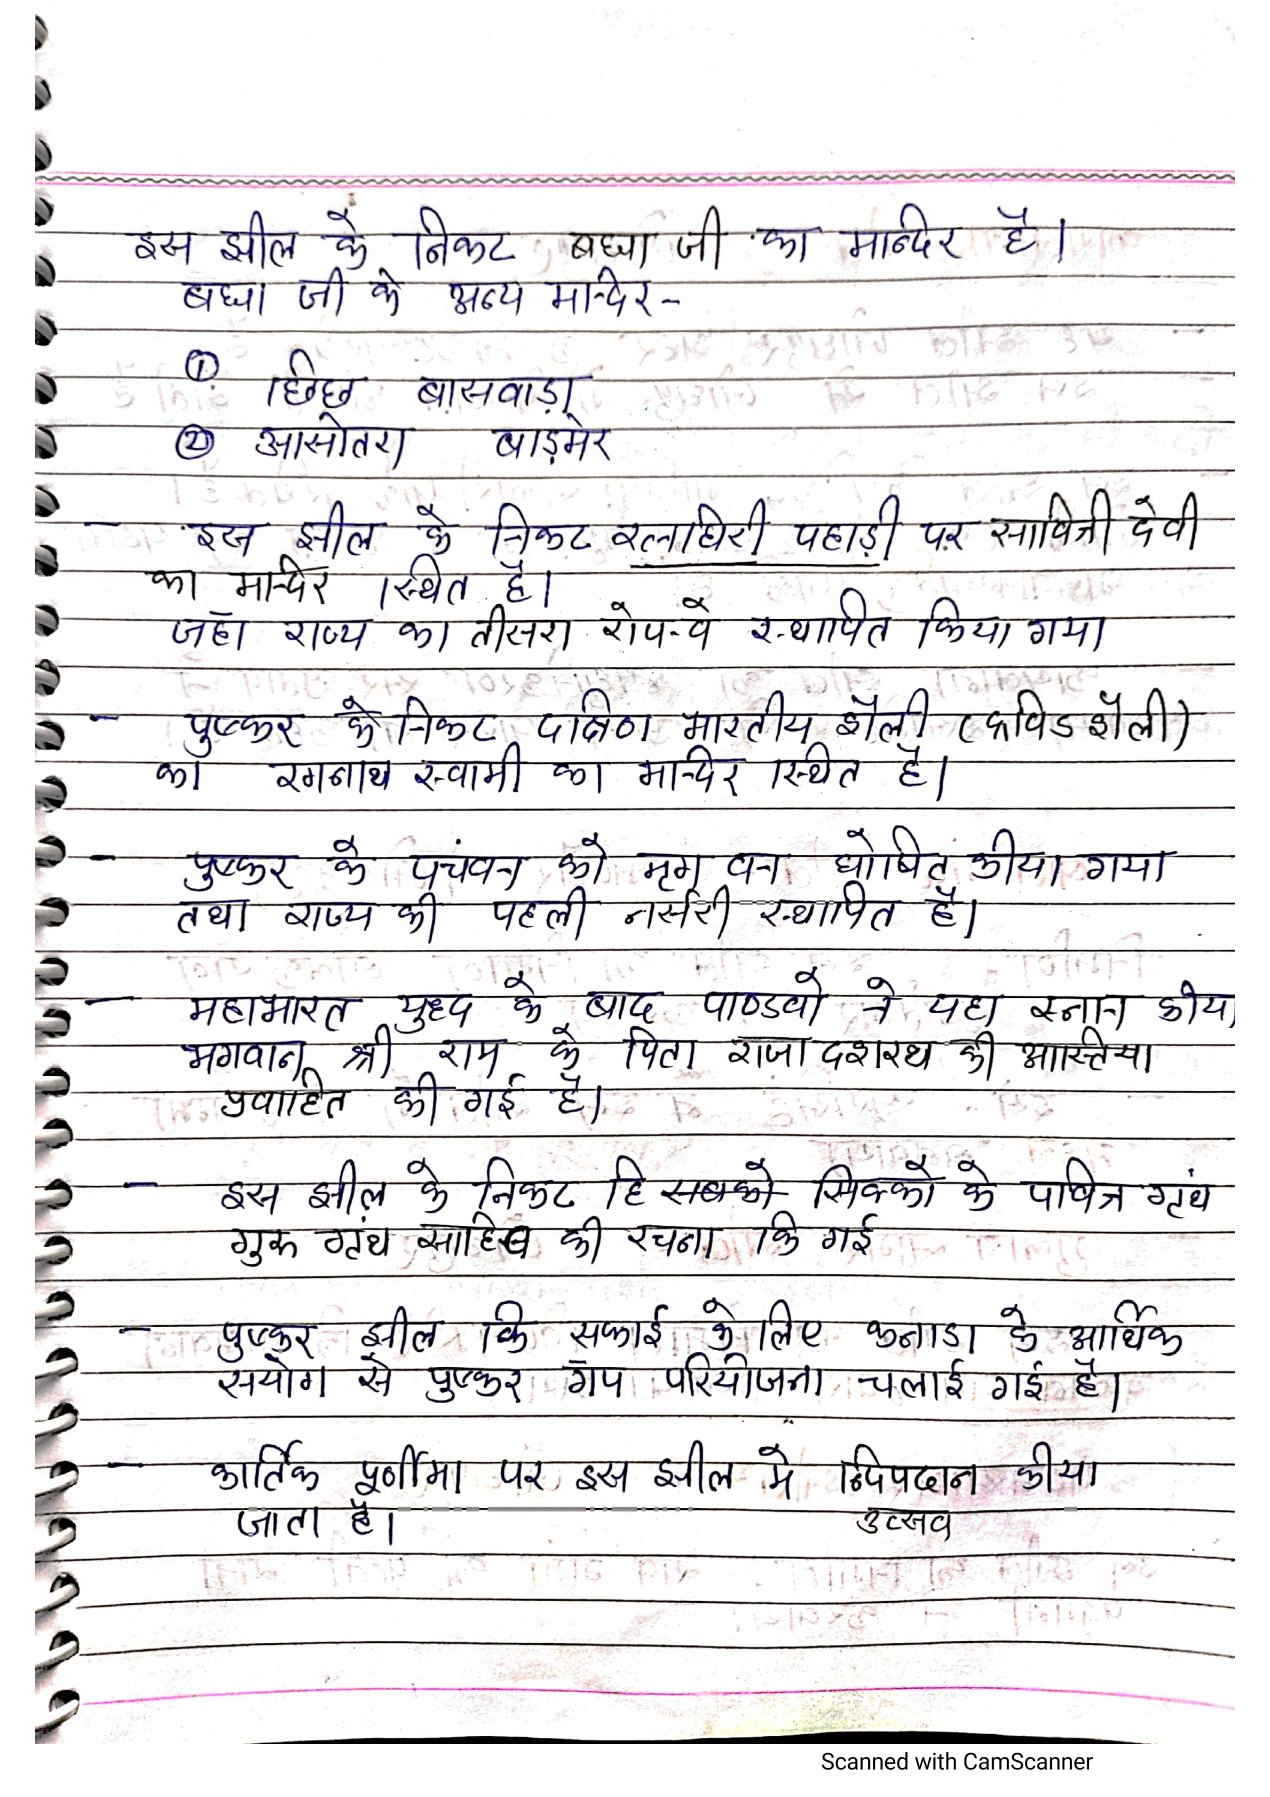 इस झील के निकट बघ्घा जी का मान्दिर है।
बघ्घा जी के अन्य मान्दिर-
① छिछ बासवाड़ा
② आसोतरा बाड़मेर
- इस झील के निकट रत्नाघिरी पहाड़ी पर सावित्री देवी
का मान्दिर स्थित है।
जहाँ राज्य का तीसरा रोप-वे स्थापित किया गया
- पुष्कर के निकट दक्षिण भारतीय शैली (द्रविड शैली)
का रगनाथ स्वामी का मान्दिर स्थित है।
- पुष्कर के पचंवन को मृग वन घोषित कीया गया
तथा राज्य की पहली नर्सरी स्थापित है।
- महाभारत युध्द के बाद पाण्डवो ने यहा स्नान कीया
भगवान श्री राम के पिता राजा दशरथ की आस्तिया
प्रवाहित की गई है।
- इस झील के निकट हि सिक्को के पवित्र ग्रंथ
गुरू ग्रंथ साहिब की रचना कि गई
- पुष्कर झील कि सफाई के लिए कनाडा के आर्थिक
सयोग से पुष्कर गॅप परियोजना चलाई गई है।
- कार्तिक पूर्णीमा पर इस झील मे दिपदान कीया
जाता है। उत्सव
Scanned with CamScanner